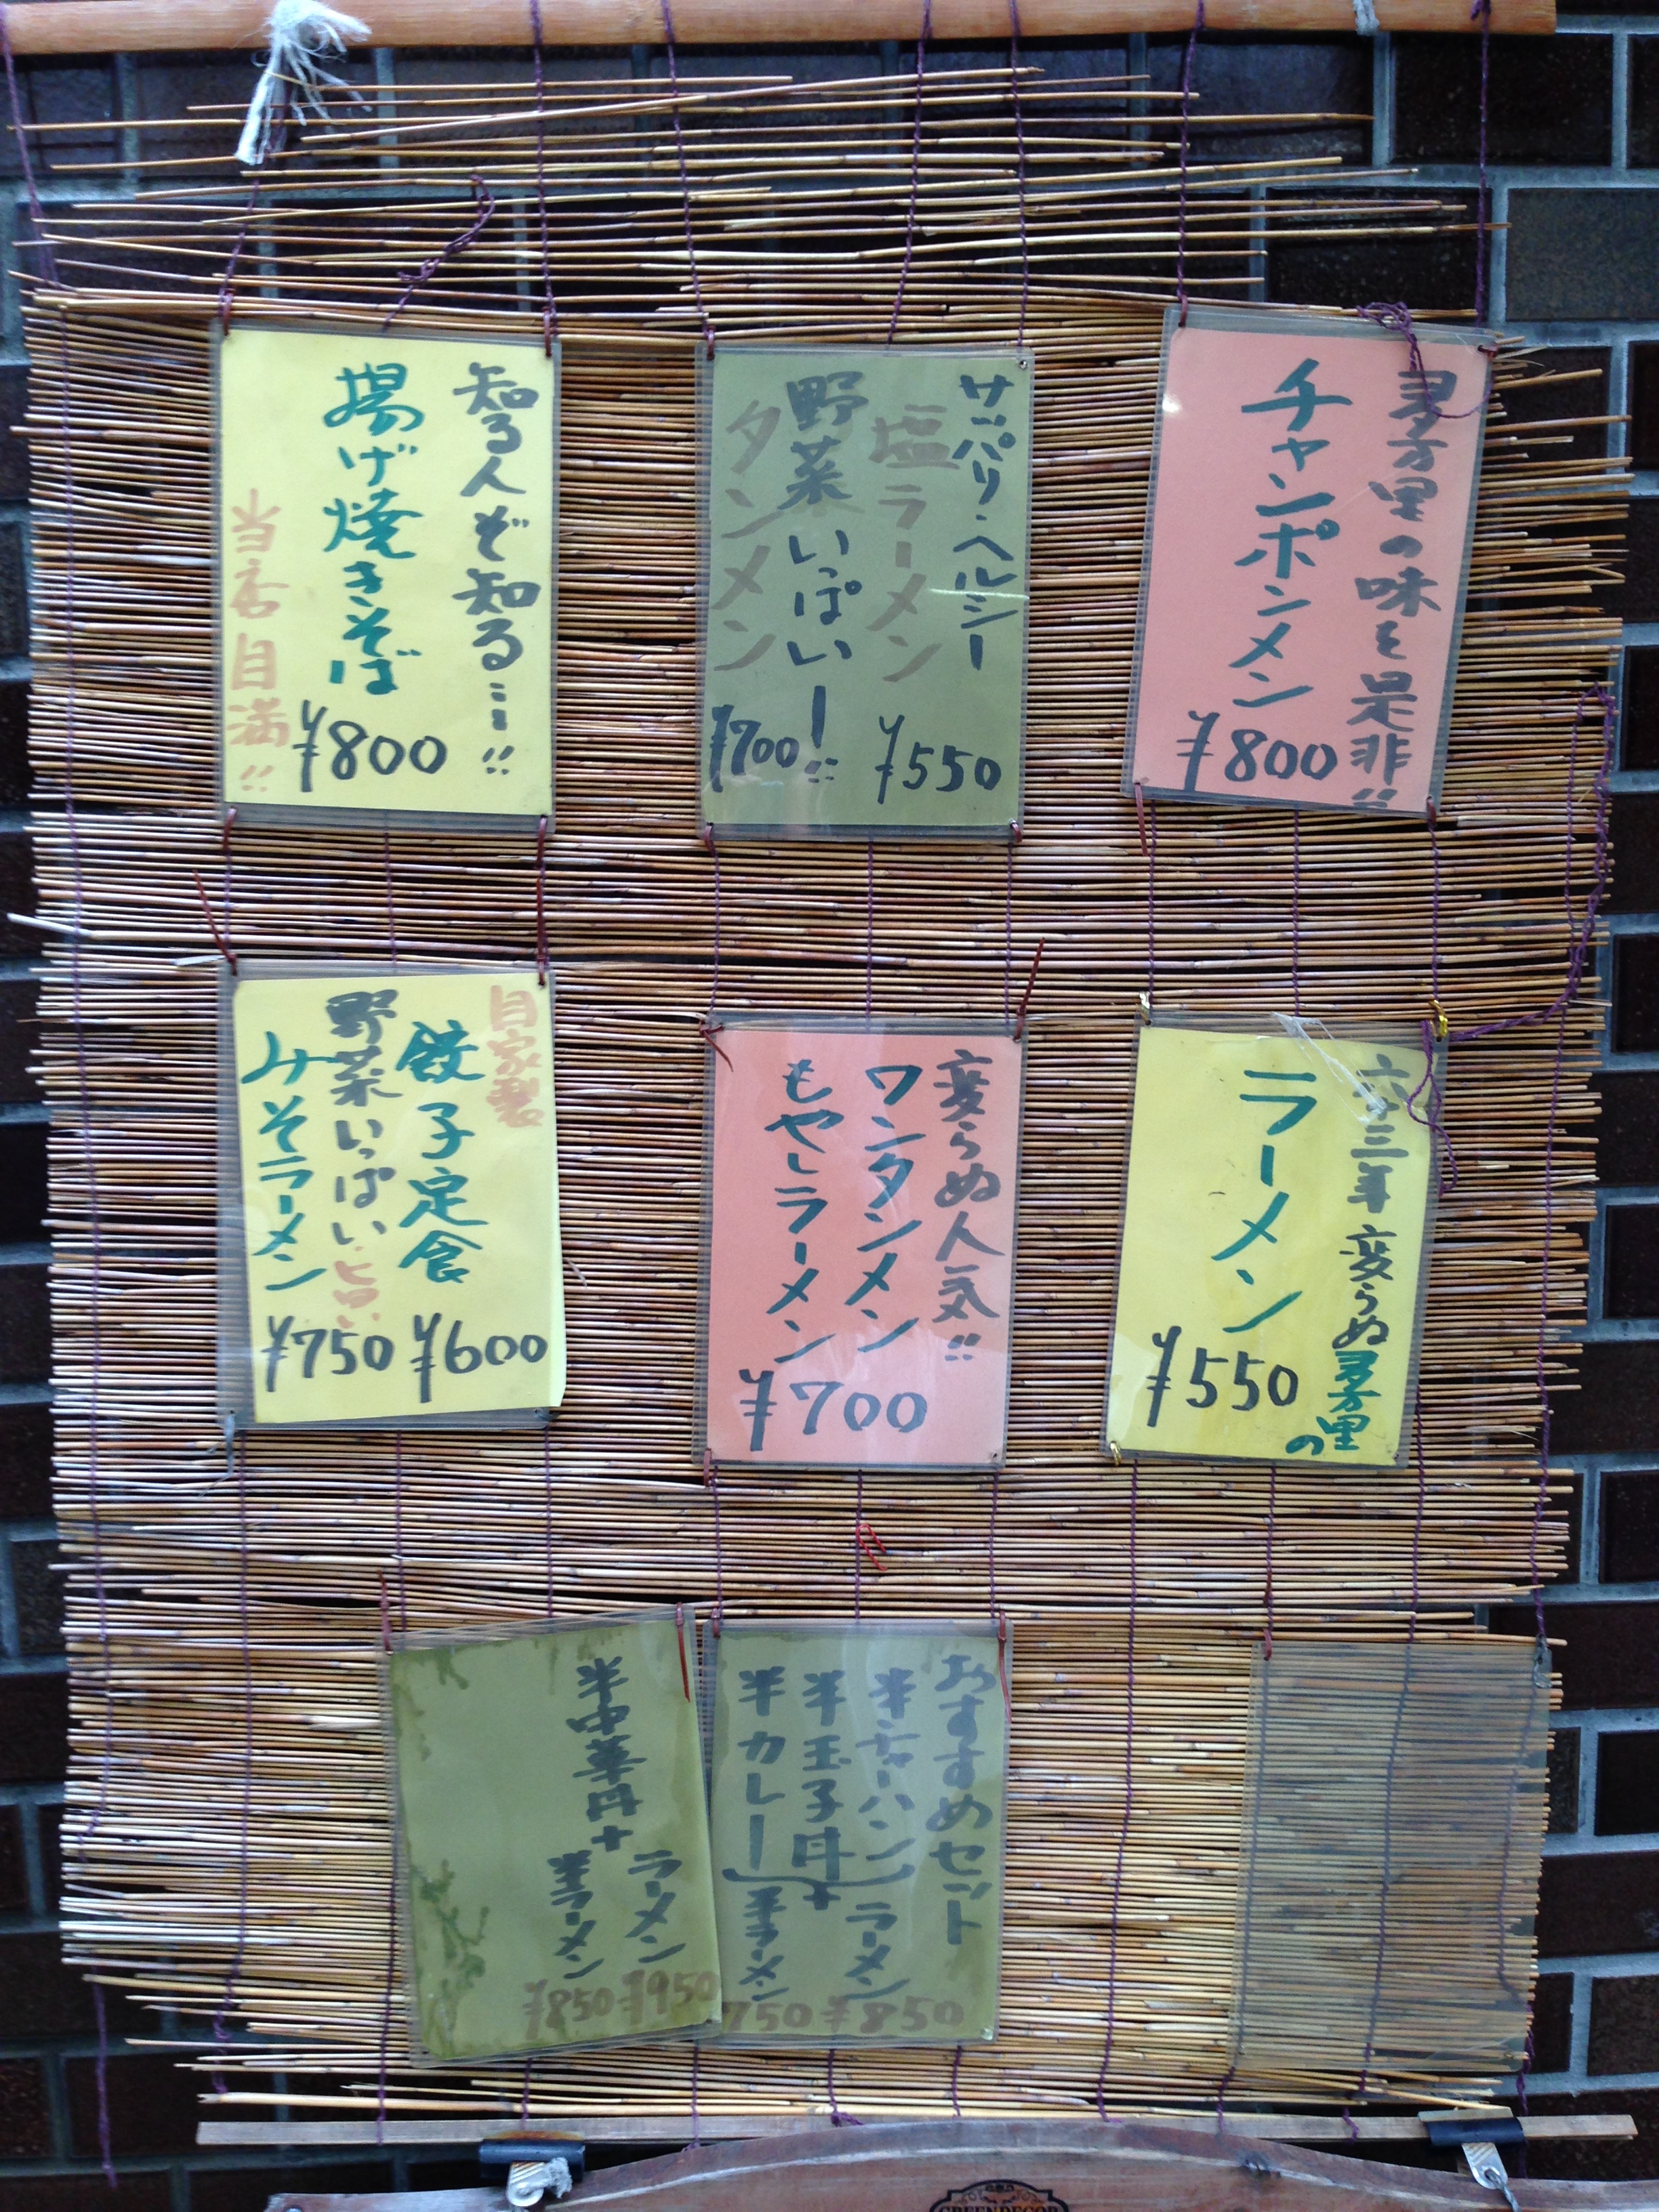 知る人ぞ知る…!!
揚げ焼きそば
¥800
当店自満!!
サッパリ・ヘルシー
塩ラーメン
¥550
野菜いっぱいー!!
タンメン
¥700
多万里の味を是非!!
チャンポンメン
¥800
自家製
餃子定食
¥600
野菜いっぱい
みそラーメン
¥750
変らぬ人気!!
ワンタンメン
もやしラーメン
¥700
六十三年変らぬ多万里の
ラーメン
¥550
半中華丼+
ラーメン
¥950
半ラーメン
¥850
おすすめセット
半チャーハン
半玉子丼
半カレー
+
ラーメン
¥850
半ラーメン
750
GREENDECOR